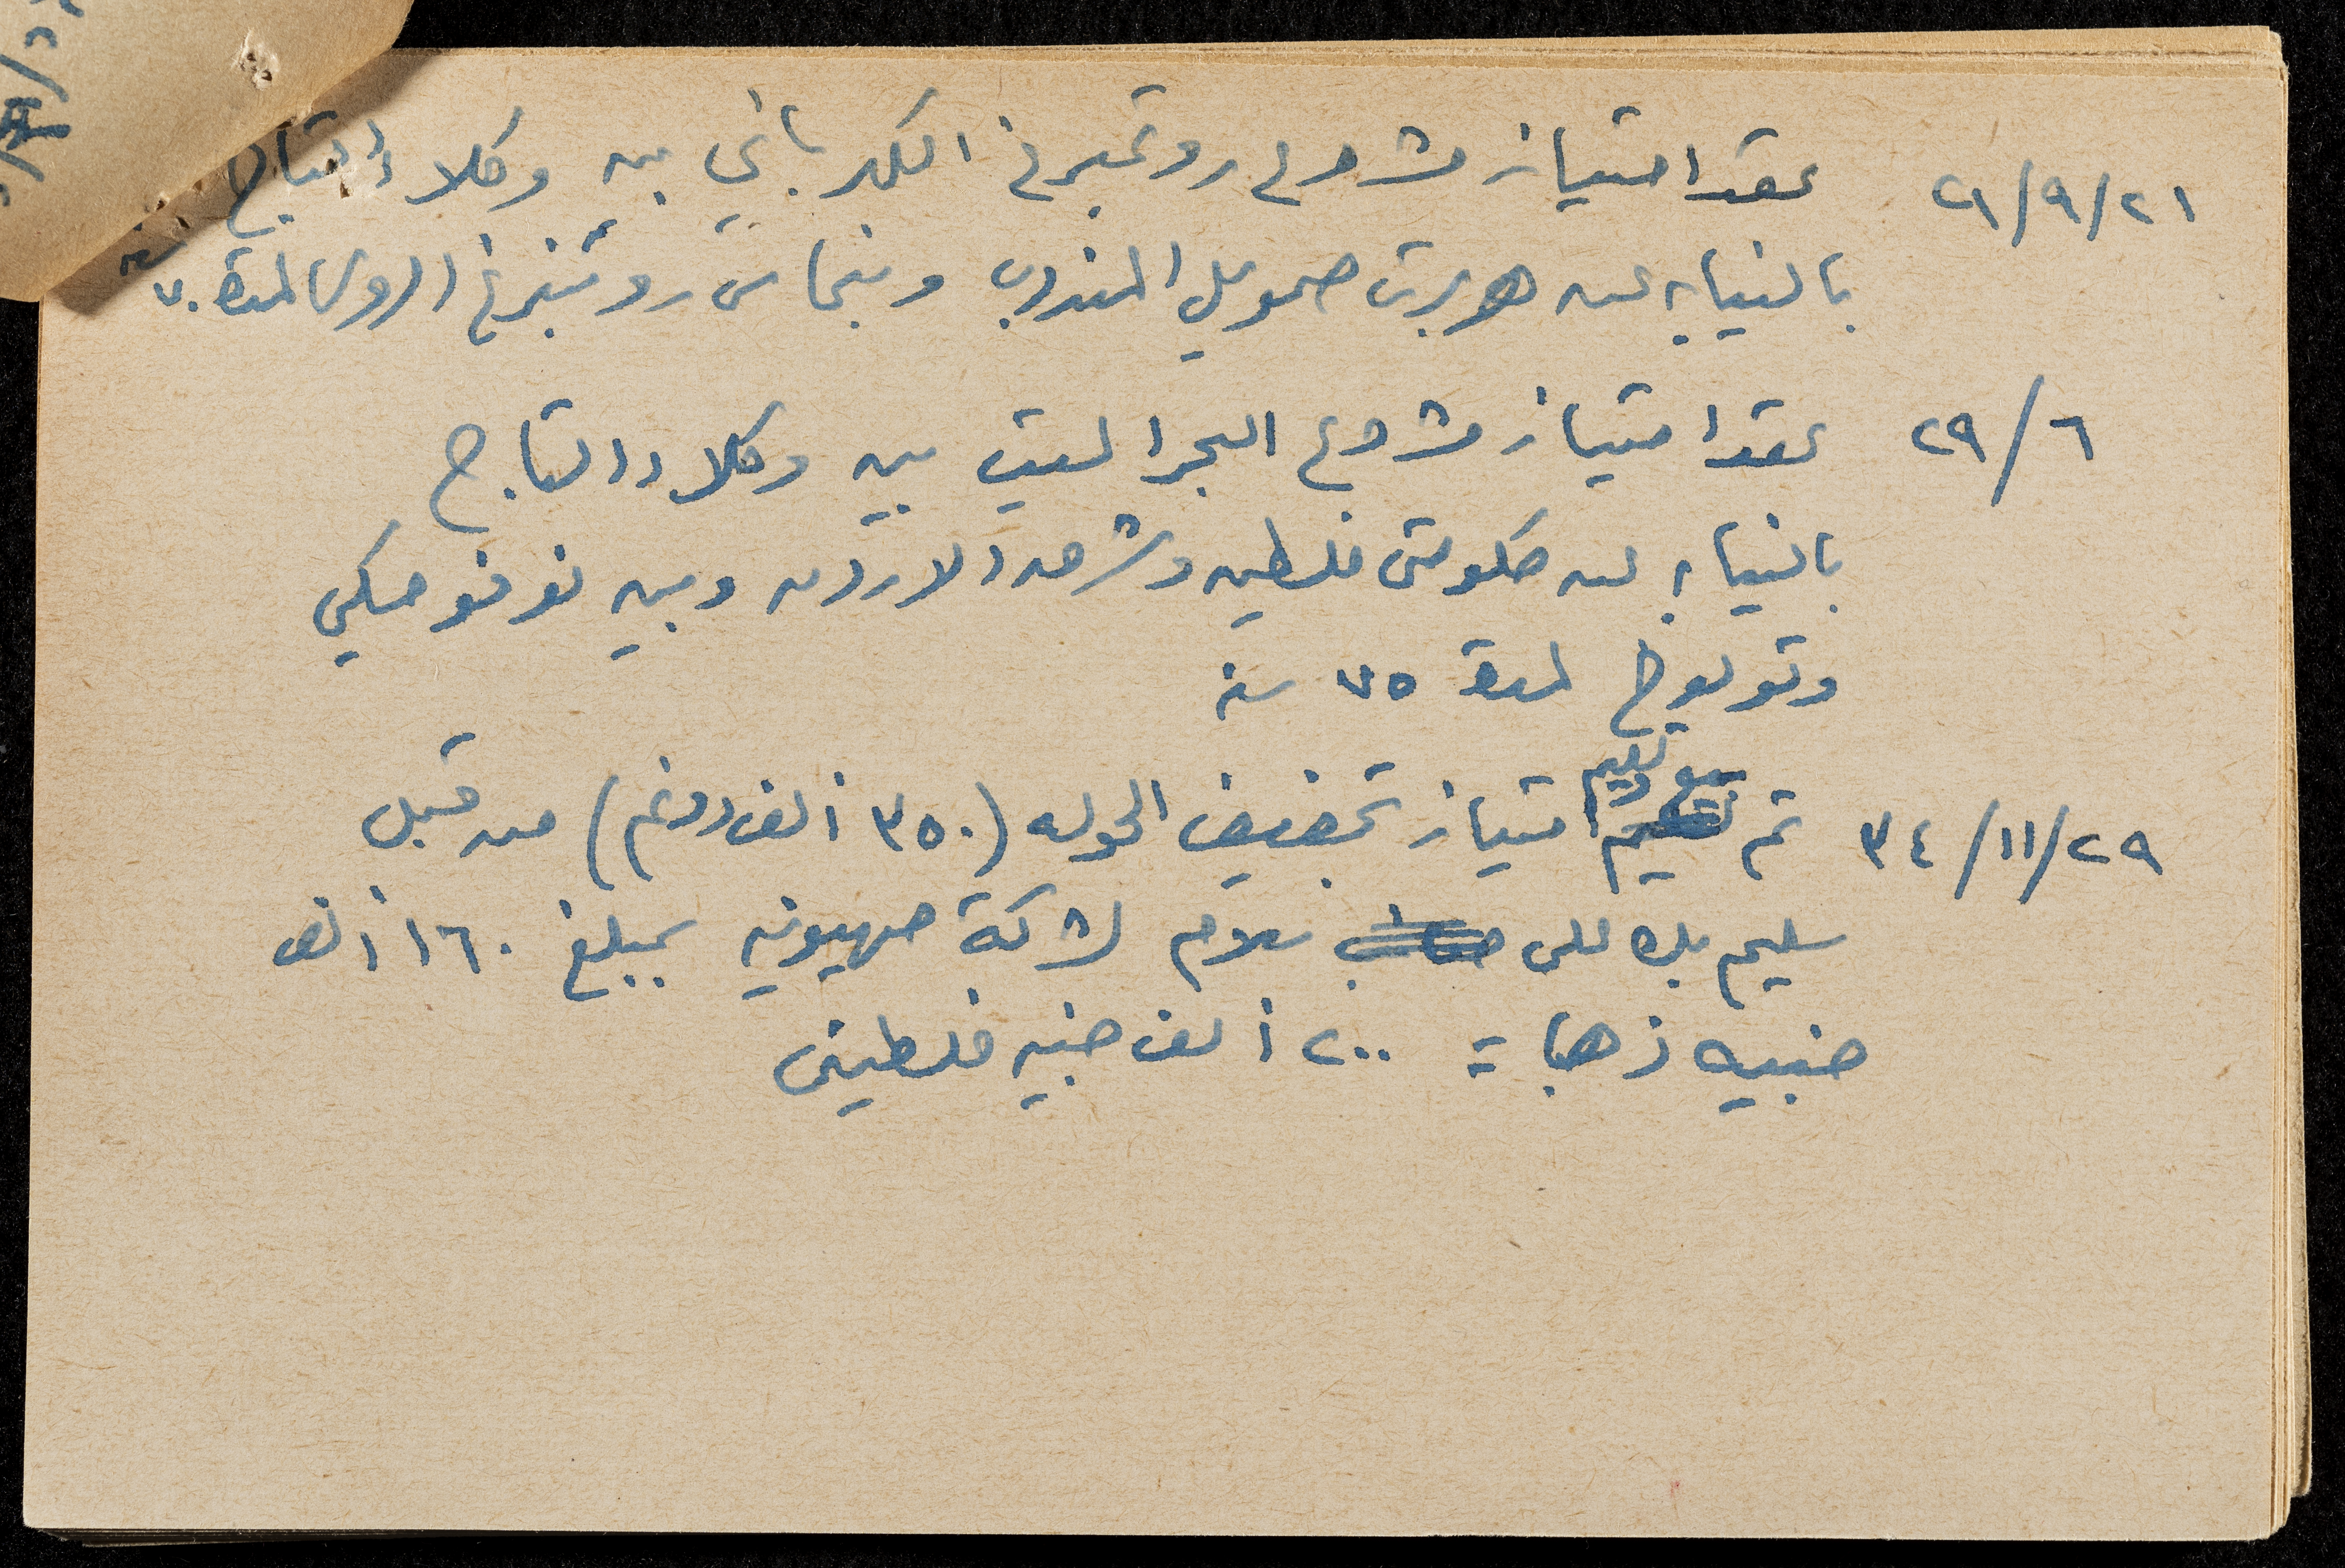 ٢١/٩/٢١ عقد امتياز مشروع روتمبرغ الكهربائي بين وكلاء التاج
بالنيابه عن هربرت صموئيل المندوب وبنحاس روتنبرغ الروسي لمدة ٧٠ سنه
٢٩/٦ عقد امتياز مشروع البحر الميت بين وكلاء التاج
بالنيابه عن حكومتي فلسطين وشرق الاردن وبين نوفوميسكي
وتولوخ لمدة ٧٥ سنه
بيع وتسليم
٣٤/١١/٢٩ تم امتياز تجفيف الحوله (٣٥٠ ألف دونم) من قبل
سليم بك علي سلام لشركة صهيونيه بمبلغ ١٦٠ ألف
جنيه ذهبا = ٢٠٠ ألف جنيه فلسطيني